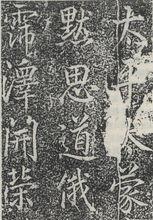 大蒙
黙思道俄
霈澤開榮